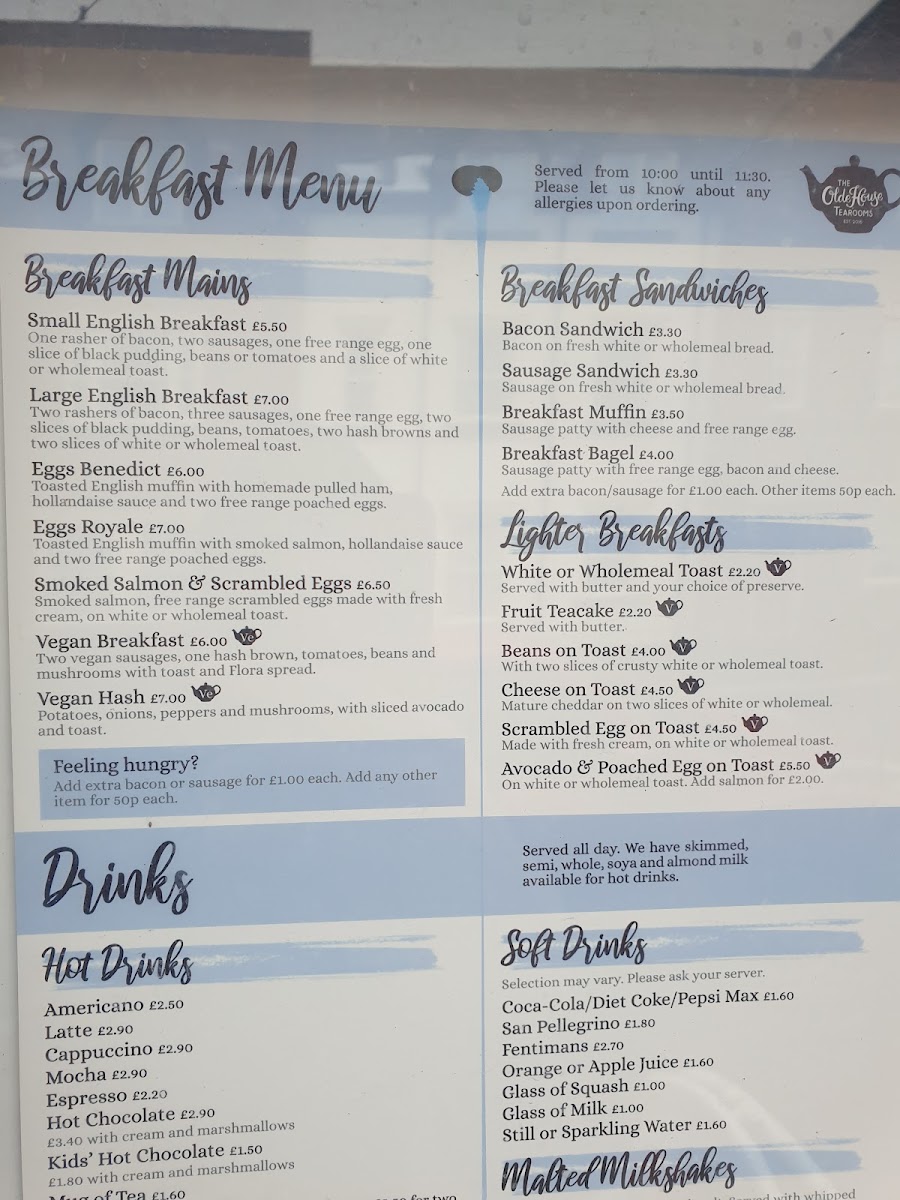 Breakfast Menu
Served from 10:00 until 11:30.
Please let us know about any
allergies upon ordering.
THE
Olde House
TEAROOMS
Breakfast Mains
Small English Breakfast £5.50
One rasher of bacon, two sausages, one free range egg, one
slice of black pudding, beans or tomatoes and a slice of white
or wholemeal toast.
Large English Breakfast £7.00
Two rashers of bacon, three sausages, one free range egg, two
slices of black pudding, beans, tomatoes, two hash browns and
two slices of white or wholemeal toast.
Eggs Benedict £6.00
Toasted English muffin with homemade pulled ham,
hollandaise sauce and two free range poached eggs.
Eggs Royale £7.00
Toasted English muffin with smoked salmon, hollandaise sauce
and two free range poached eggs.
Smoked Salmon & Scrambled Eggs £6.50
Smoked salmon, free range scrambled eggs made with fresh
cream, on white or wholemeal toast.
Vegan Breakfast £6.00 Ve
Two vegan sausages, one hash brown, tomatoes, beans and
mushrooms with toast and Flora spread.
Vegan Hash £7.00 Ve
Potatoes, onions, peppers and mushrooms, with sliced avocado
and toast.
Feeling hungry?
Add extra bacon or sausage for £1.00 each. Add any other
item for 50p each.
Breakfast Sandwiches
Bacon Sandwich £3.30
Bacon on fresh white or wholemeal bread.
Sausage Sandwich £3.30
Sausage on fresh white or wholemeal bread.
Breakfast Muffin £3.50
Sausage patty with cheese and free range egg.
Breakfast Bagel £4.00
Sausage patty with free range egg, bacon and cheese.
Add extra bacon/sausage for £1.00 each. Other items 50p each.
Lighter Breakfasts
White or Wholemeal Toast £2.20 V
Served with butter and your choice of preserve.
Fruit Teacake £2.20 V
Served with butter.
Beans on Toast £4.00 V
With two slices of crusty white or wholemeal toast.
Cheese on Toast £4.50 V
Mature cheddar on two slices of white or wholemeal.
Scrambled Egg on Toast £4.50 V
Made with fresh cream, on white or wholemeal toast.
Avocado & Poached Egg on Toast £5.50 V
On white or wholemeal toast. Add salmon for £2.00.
Drinks
Served all day. We have skimmed,
semi, whole, soya and almond milk
available for hot drinks.
Hot Drinks
Americano £2.50
Latte £2.90
Cappuccino £2.90
Mocha £2.90
Espresso £2.20
Hot Chocolate £2.90
£3.40 with cream and marshmallows
Kids' Hot Chocolate £1.50
£1.80 with cream and marshmallows
Mug of Tea £1.60
for two
Soft Drinks
Selection may vary. Please ask your server.
Coca-Cola/Diet Coke/Pepsi Max £1.60
San Pellegrino £1.80
Fentimans £2.70
Orange or Apple Juice £1.60
Glass of Squash £1.00
Glass of Milk £1.00
Still or Sparkling Water £1.60
Malted Milkshakes
Served with whipped